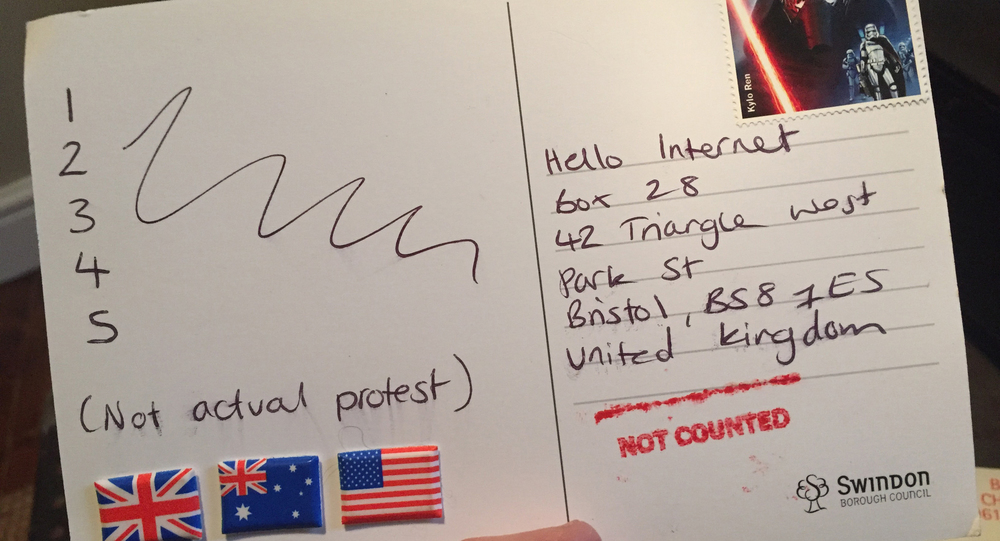 1
2
3
4
5
(Not actual protest)
Kylo Ren
Hello Internet
box 28
42 Triangle west
Park St
Bristol, BS8 1ES
United kingdom
NOT COUNTED
SWINDON
BOROUGH COUNCIL